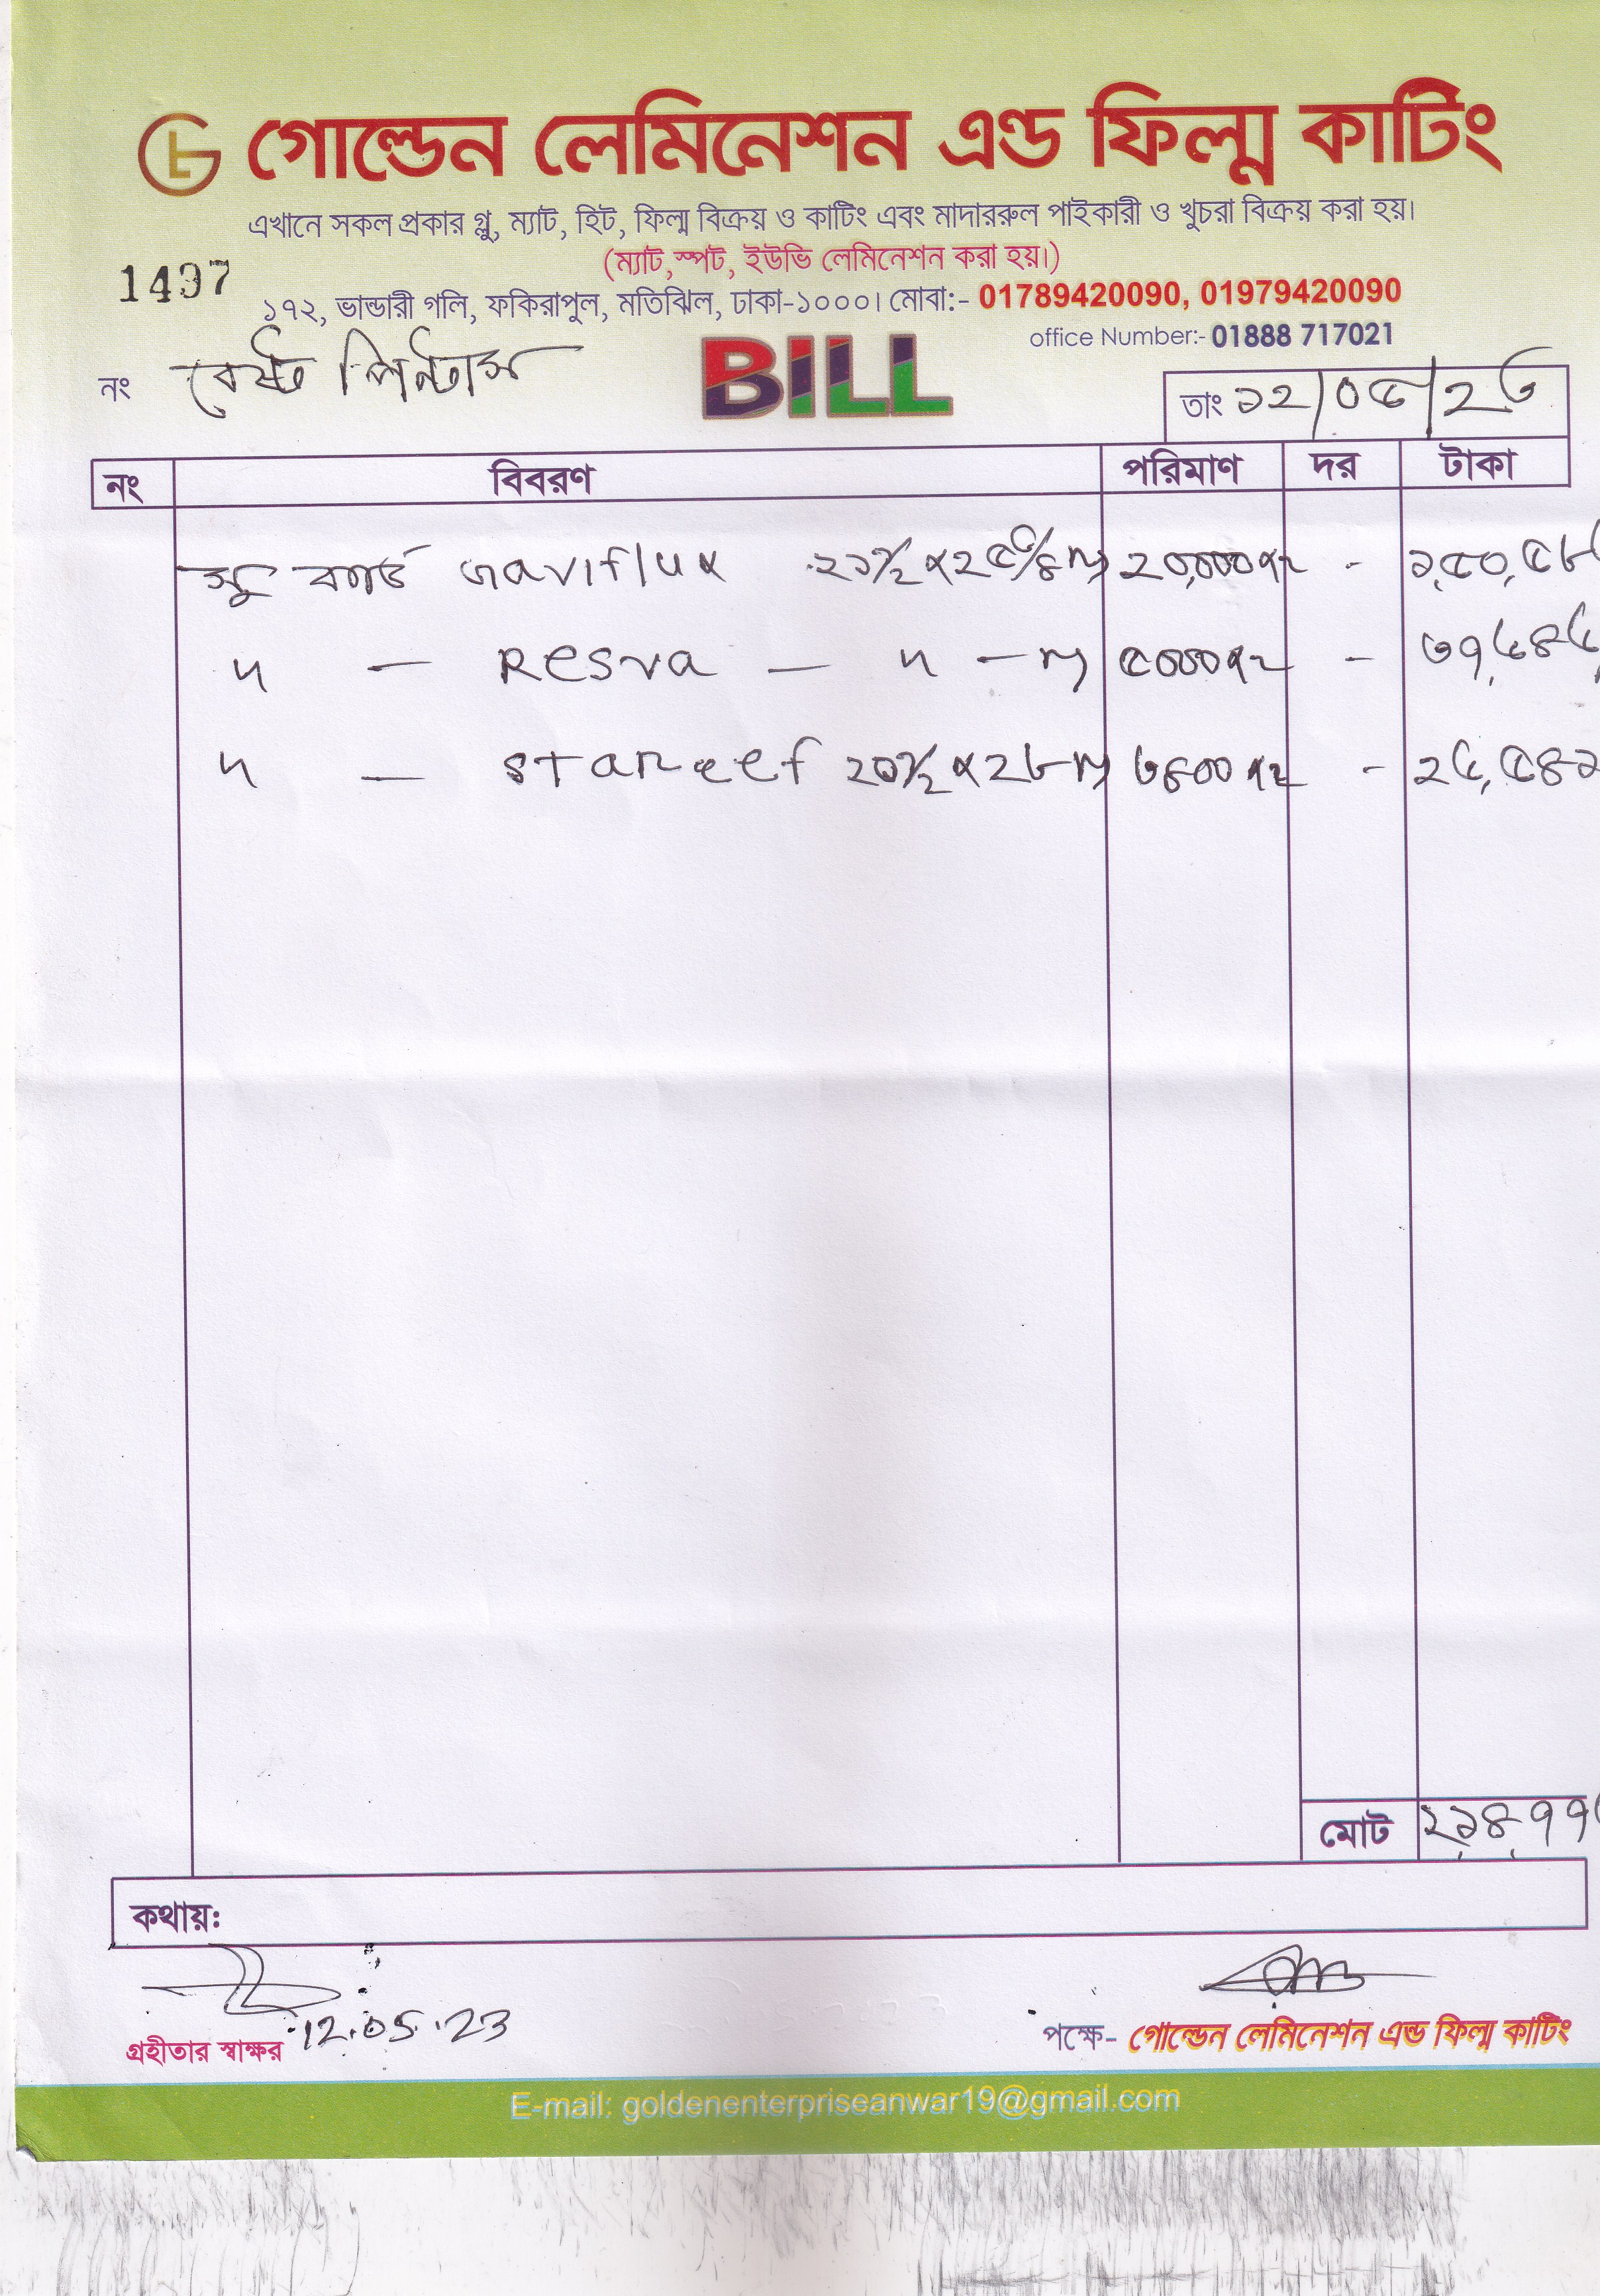 গোল্ডেন লেমিনেশন এন্ড ফিল্ম কাটিং
এখানে সকল প্রকার গ্লু, ম্যাট, হিট, ফিল্ম বিক্রয় ও কাটিং এবং মাদাররুল পাইকারী ও খুচরা বিক্রয় করা হয়।
(ম্যাট,স্পট, ইউভি লেমিনেশন করা হয়।)
1497
১৭২, ভান্ডারী গলি, ফকিরাপুল, মতিঝিল, ঢাকা-১০০০। মোবা:- 01789420090, 01979420090
office Number:- 01888 717021
নং বেষ্ট প্রিন্টার্স
BILL
তাং ১২/০৫/২৩
নং বিবরণ পরিমাণ দর টাকা
কার্ড Gaviflux ২১½ x ২৫ ৩/৪ ২০,০০০ - ১,৫০,৫৮
〃 — Resva — 〃 — ৫০০০ - ৩৭,৬৪৫
〃 — stareef ২০½ x ২৮ ৩৪০০ - ২৬,৫৪১
মোট ২,১৪,৭৭
কথায়:
12.05.23
গ্রহীতার স্বাক্ষর
পক্ষে- গোল্ডেন লেমিনেশন এন্ড ফিল্ম কাটিং
E-mail: goldenenterpriseanwar19@gmail.com